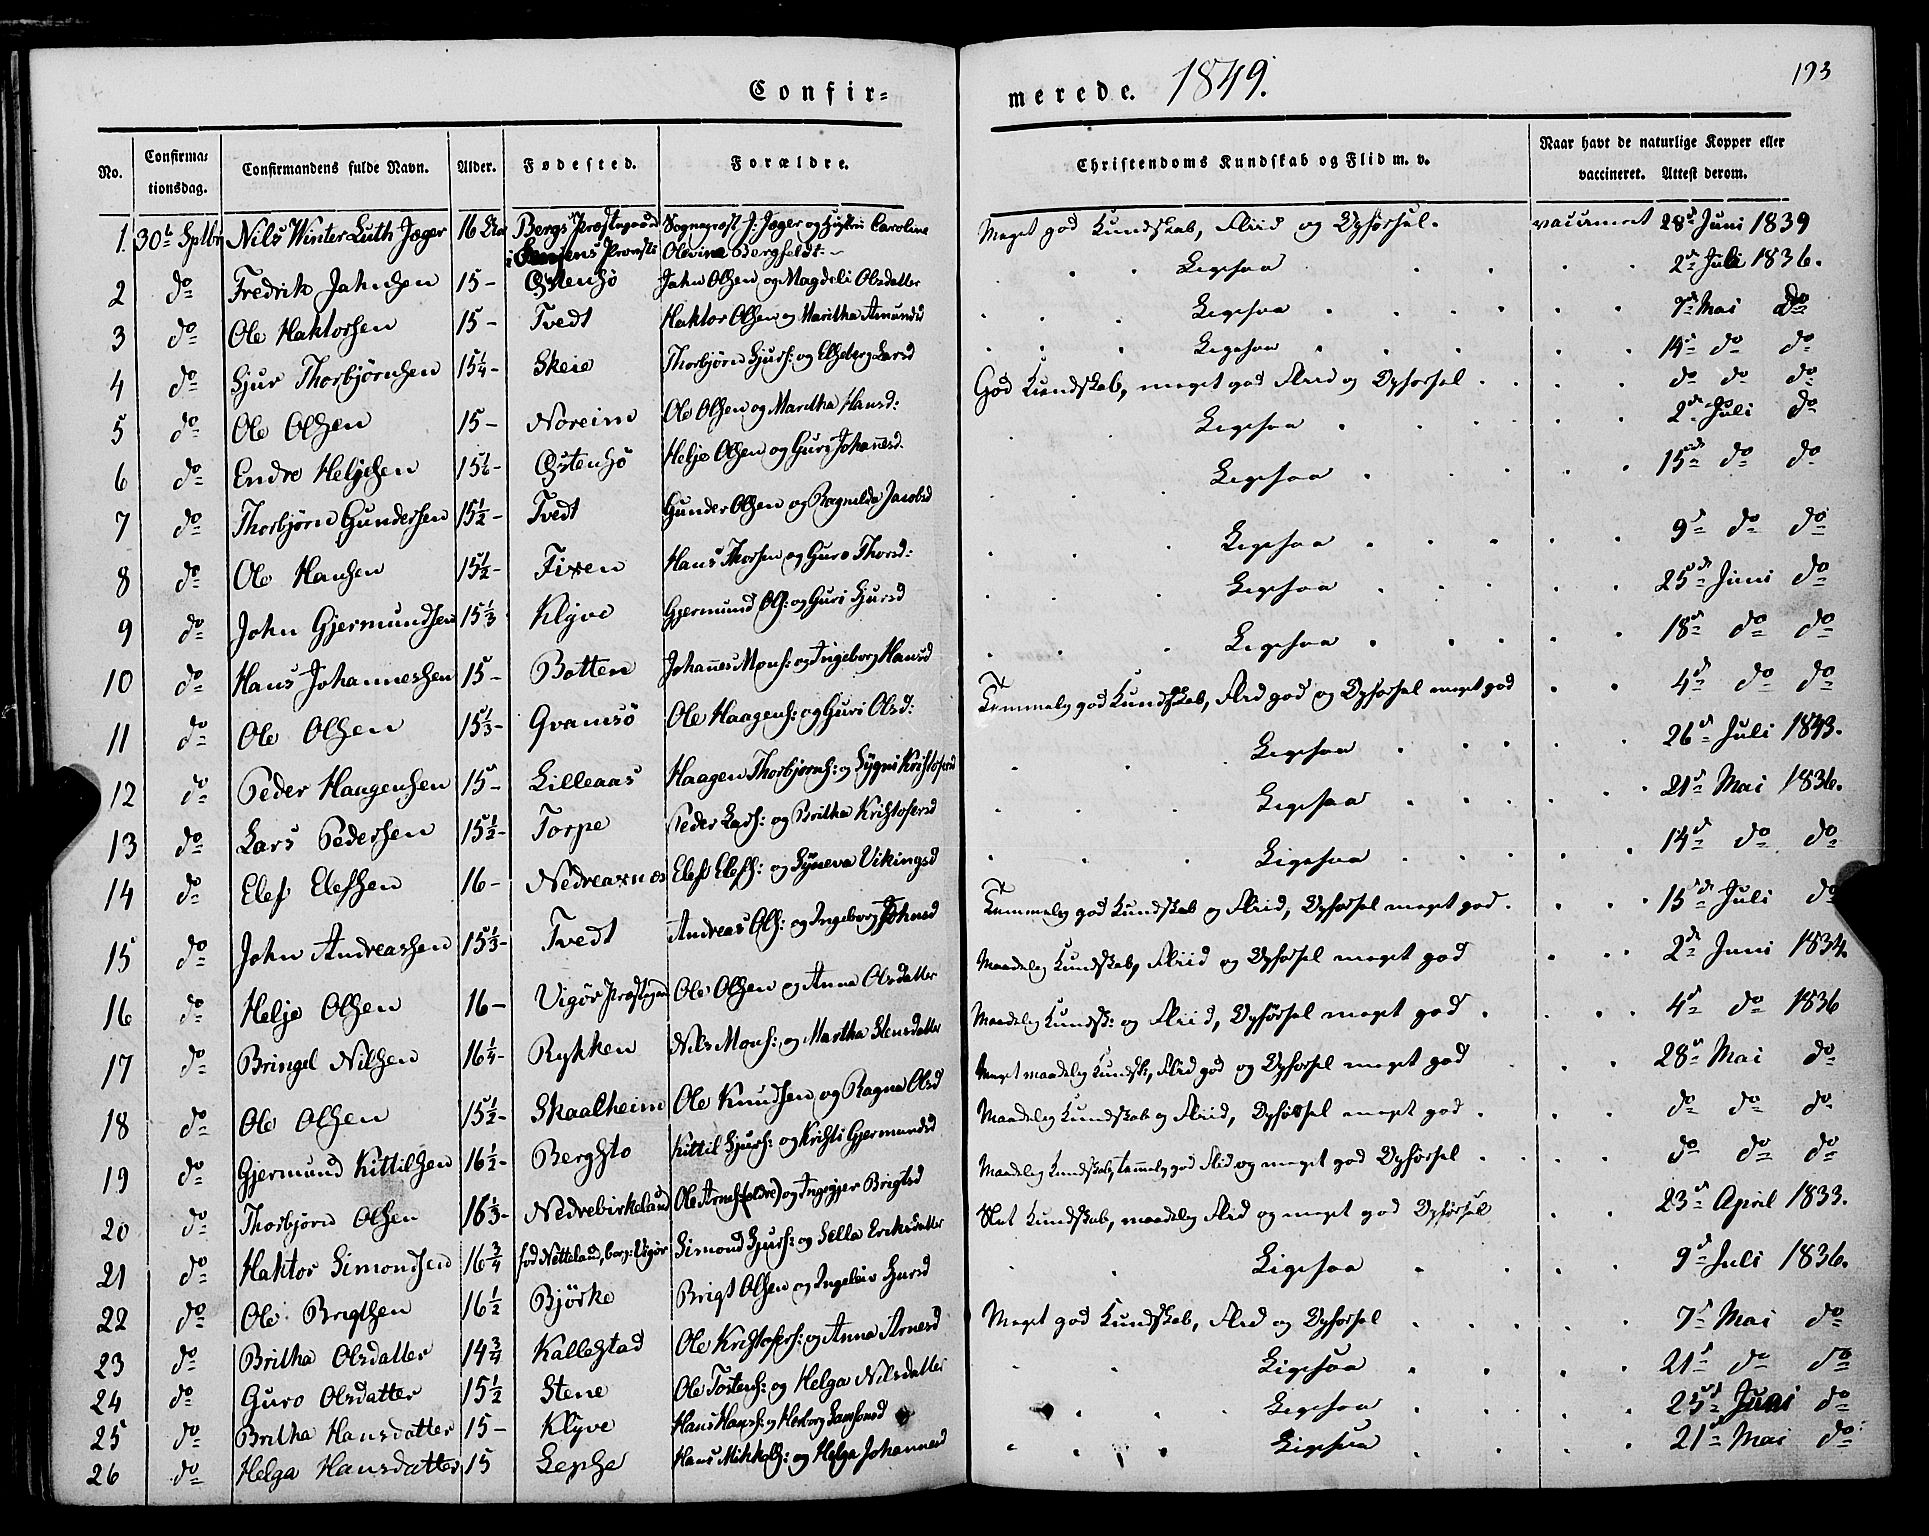 Confir-
merede. 1849.
193
No. Confirmationsdag. Confirmandens fulde Navn. Alder. Fødested. Forældre. Christendoms Kundskab og Flid m. v. Naar havt de naturlige Kopper eller vaccineret. Attest derom.
1. 30te Sptbr Nils Winter Luth Jæger 16 Bergs Præstegaard Sognepræst J: Jæger og Hustru Caroline Meget god Kundskab, Fliid og Opførsel. vaccineret 28de Juni 1839
i Provsti Olevine Bergfeldt
2 do Fredrik Johnsen 15 - Østensø John Olsen og Magdeli Olsdatter Ligesaa 2de Juli 1836.
3 do Ole Haktorsen 15 - Tvedt Haktor Olsen og Maritha Amunds Ligesaa 7de Mai do
4 do Sjur Thorbjørnsen 15¼ - Skeie Thorbjørn Sjurs: og Elseberg Larsd Ligesaa 14de do do
5 do Ole Olsen 15 - Noreim Ole Olsen og Maritha Hansd: God Kundskab, meget god Fliid og Opførsel do do do
6 do Endre Heljesen 15 - Østensø Helje Olsen og Guri Johannesd. Ligesaa 2de Juli do
7 do Thorbjørn Gundersen 15½ - Tvedt Gunder Olsen og Ragnilda Jacobsd Ligesaa 15de do do
8 do Ole Hansen 15½ - Fixen Hans Thorsen og Guro Thorsd: Ligesaa 9de do do
9 do John Gjermundsen 15⅓ Klyve Gjermund Ols: og Guri Sjursd Ligesaa 25de Juni do
10 do Hans Johannessen 15 - Botten Johannes Mons: og Ingeborg Hansd Ligesaa 18de do do
11 do Ole Olsen 15⅓ - Qvamsø Ole Haagens: og Guri Olsd: Temmelig god Kundskab, Flid god og Opførsel meget god 4de do do
12 do Peder Haagensen 15 - Lilleaas Haagen Thorbjørns: og Sygni Kristofersd Ligesaa 26de Juli 1843.
13 do Lars Pedersen 15½ - Torpe Peder Lars: og Britha Kristofersd Ligesaa 21de Mai 1836.
14 do Elef Elefsen 16 - Nedreaxnes Elef Elefs: og Syneva Vikingsd Ligesaa 14de do do
15 do John Andreassen 15⅓ - Tvedt Andreas Ols: og Ingeborg Johnsd Temmelig god Kundskab og Fliid, Opførsel meget god. 15de Juli do
16 do Helje Olsen 16 - Vigør Præstegj Ole Olsen og Anna Olsdatter Maadelig Kundskab, Fliid og Opførsel meget god 2de Juni 1834.
17 do Bringel Nilsen 16¼ - Rykken Nils Mons: og Martha Stensdatter Maadelig Kundsk: og Fliid, Opførsel meget god 4de do 1836
18 do Ole Olsen 15½ - Skaalheim Ole Knudsen og Ragna Olsd Meget maadelig Kundsk, Flid god og Opførsel meget god 28de Mai do
19 do Gjermund Kittilsen 16½ - Bergsto Kittil Sjurs: og Kristi Gjermundsd Maadelig Kundskab og Fliid, Opførsel meget god do do do
20 do Thorbjørn Olsen 16⅓ - Nedrebirkeland Ole Arnes: (ældre) og Ingegjer Brigtsd Maadelig Kundskab, temmelig god Flid og meget god Opførsel do do do
21 do Haktor Simondsen 16¾ fød Netteland, bor: Vigør Simond Sjurs: og Sella Eriksdatter Slet Kundskab, maadelig Flid og meget god Opførsel 23de April 1833.
22 do Ole Brigtsen 16½ Bjørke Brigt Olsen og Ingeleiv Sjursd Ligesaa 9de Juli 1836.
23 do Britha Olsdatter 14¾ Kallestad Ole Kristofers: og Anna Arnesd Meget god Kundskab, Flid og Opførsel 7de Mai do
24 do Guro Olsdatter 15½ Stene Ole Tostens: og Helga Nilsdatter Ligesaa 21de do do
25 do Britha Hansdatter 15 - Klyve Hans Hans: og Herborg Samsonsd Ligesaa 25de Juni do
26 do Helga Hansdatter 15 Lepse Hans Mikkels: og Helga Johannesd Ligesaa 21de Mai do